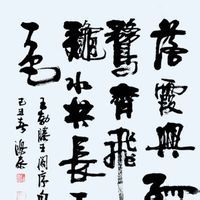 落霞與孤
鶩齊飛
龝水共長
色
王勃滕王閣序句
己丑春